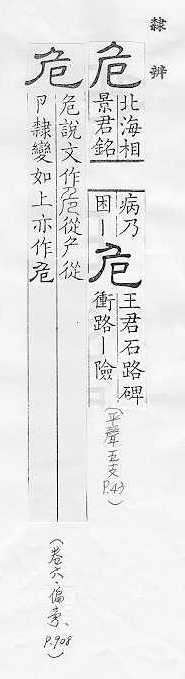 隸辨
危
北海相
景君銘
病乃
困丨
危
王君石路碑
衝路丨險
(平聲五支
P.43)
危
危說文作危從厃從
卩隸變如上亦作危
(卷六·偏旁、
P.908)